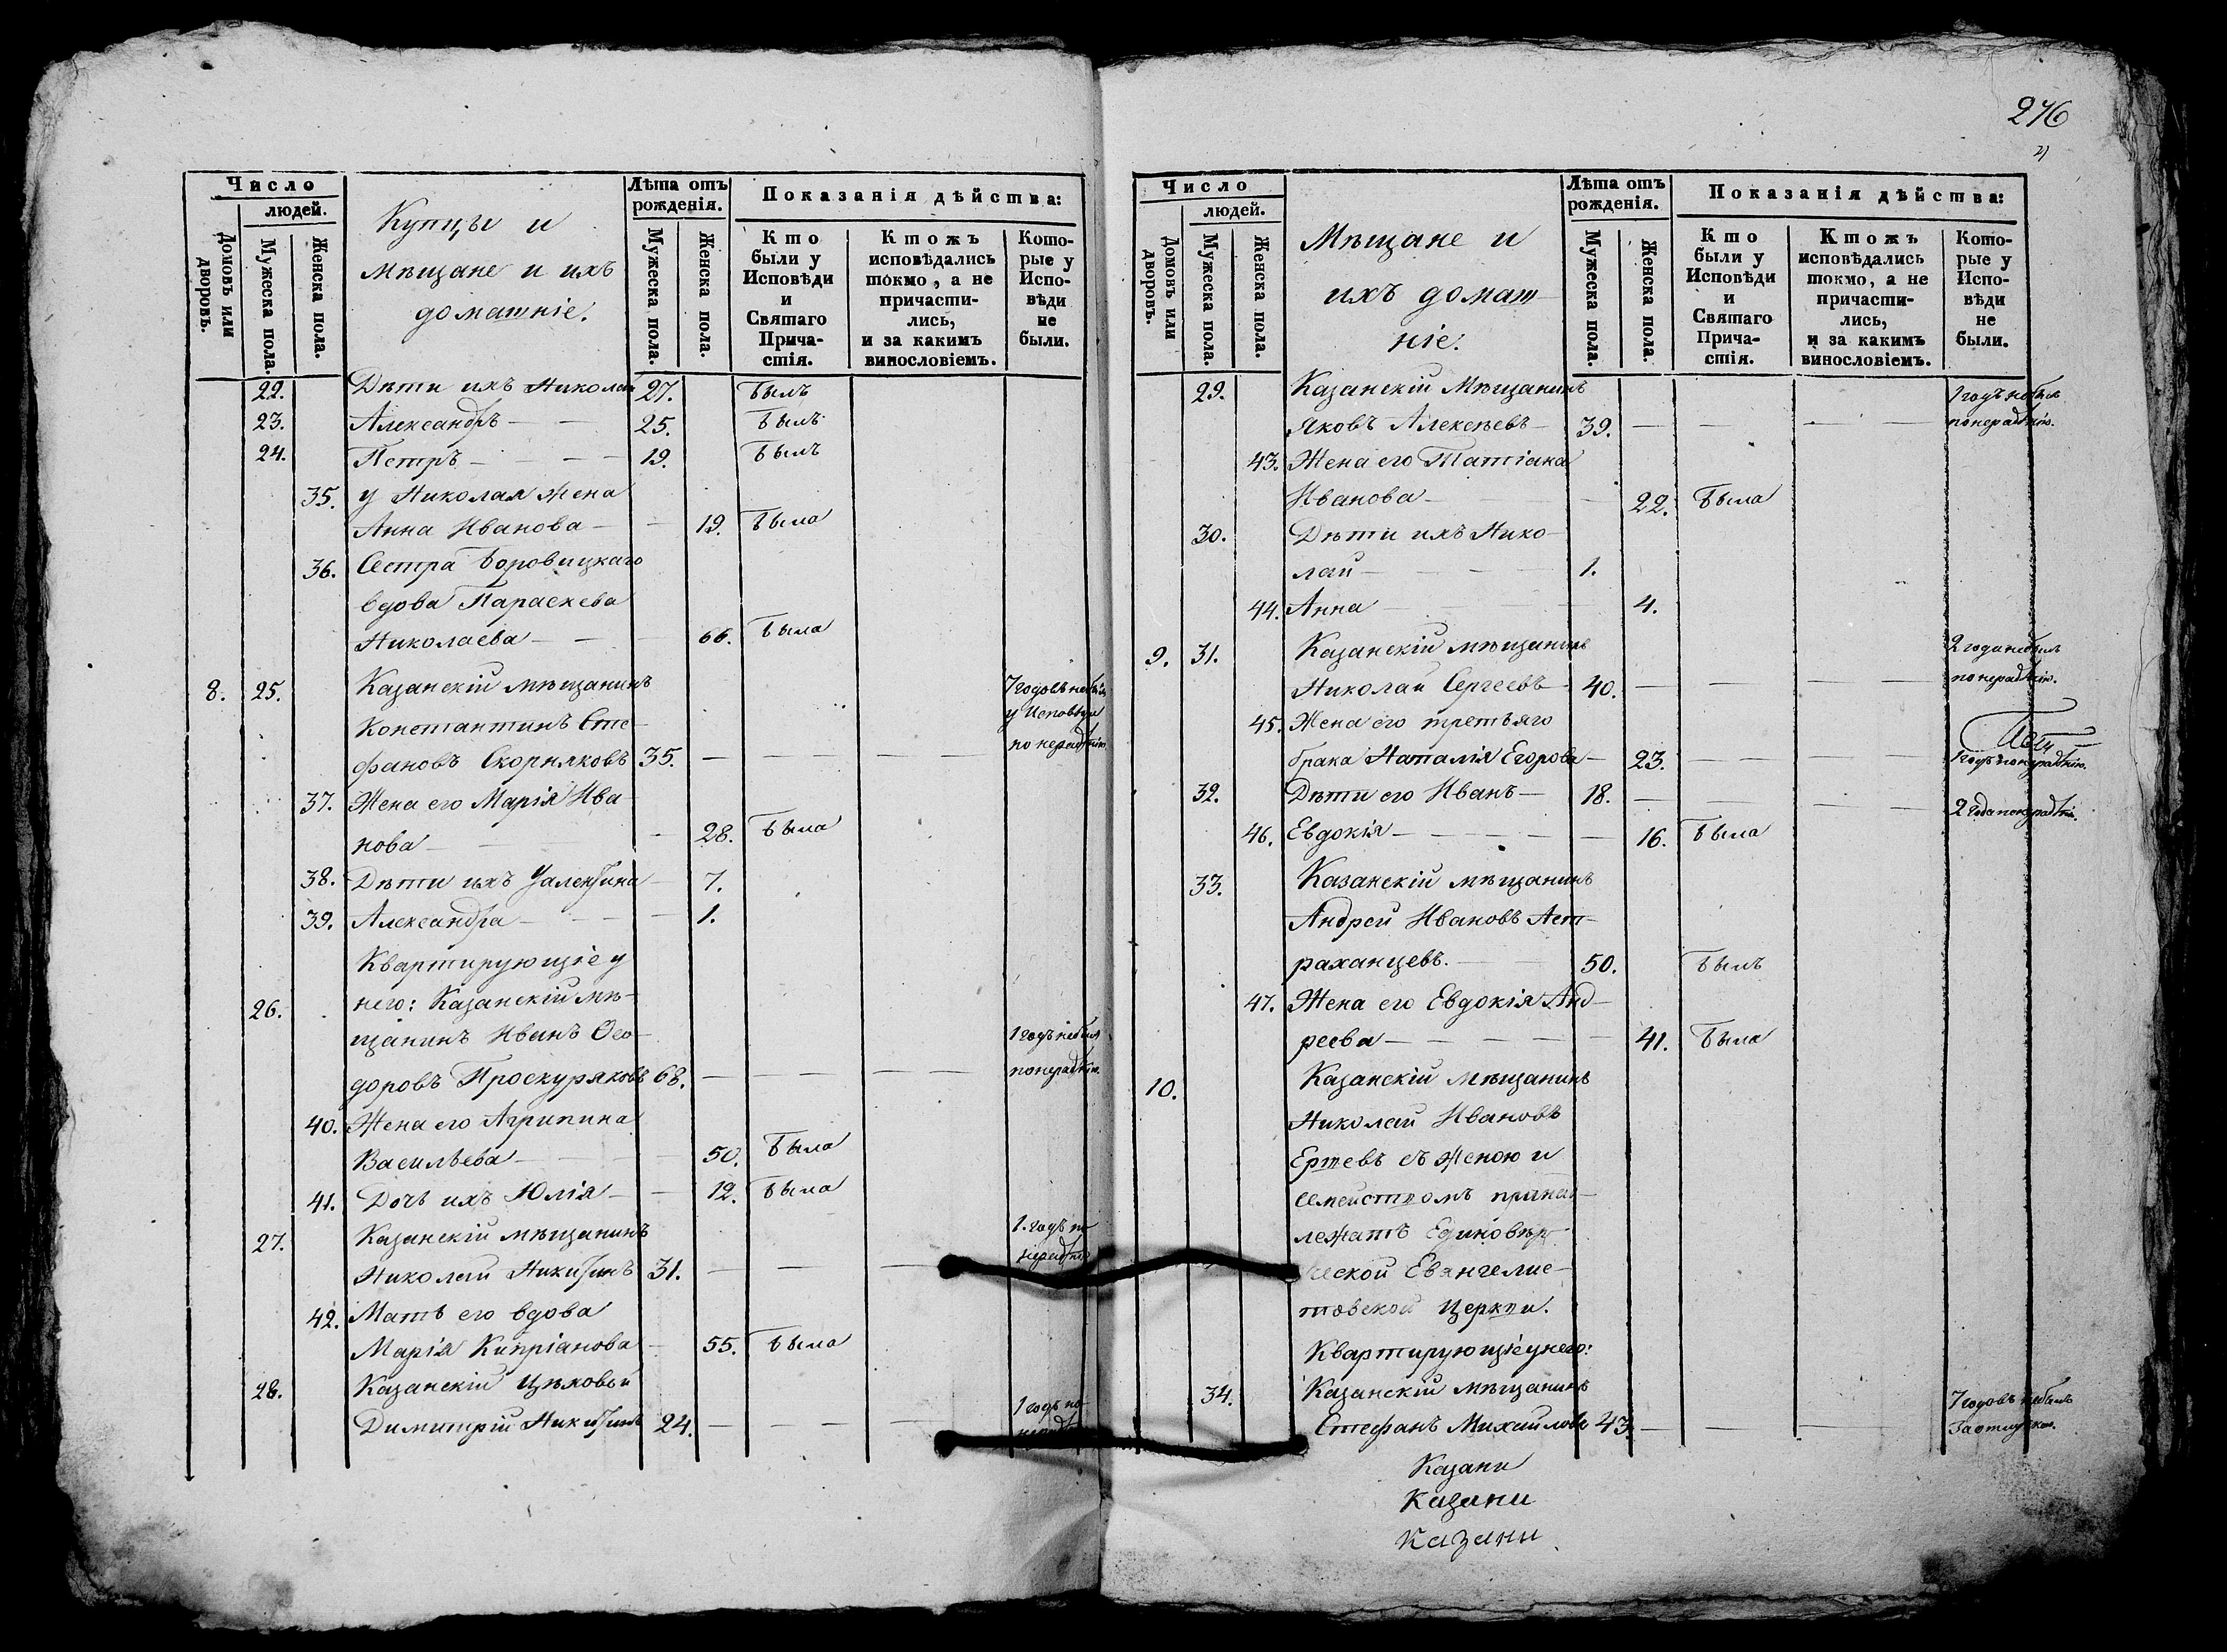 Число
людей.
Домовъ или дворовъ.
Мужеска пола.
Женска пола.
Купцы и
мѣщане и ихъ
домашніе.
Лѣта отъ
рожденія.
Мужеска пола.
Женска пола.
Показанія дѣйства:
Кто
были у
Исповѣди
и
Святаго
Прича-
стія.
Ктожъ
исповѣдались
токмо, а не
причасти-
лись,
и за какимъ
винословіемъ.
Кото-
рые у
Испо-
вѣди
не
были.
22. Дѣти ихъ Николай 27. былъ
23. Александръ 25. былъ
24. Петръ 19. былъ
35. у Николая жена
Анна Иванова 19. была
36. Сестра Боровицкаго
вдова Параскева
Николаева 66. была
8. 25. Казанскій мѣщанинъ 7 годовъ небылъ
Константинъ Сте- у Исповѣди
фановъ Скорняковъ 35. по нерадѣнію
37. Жена его Марія Ива-
нова 28. была
38. Дѣти ихъ Уалентина 7.
39. Александра 1.
Квартирующіе у
26. него: Казанскій мѣ-
щанинъ Иванъ Ѳео- 1 годъ небылъ
доровъ Проскуряковъ 68. по нерадѣнію.
40. Жена его Агрипина
Васильева 50. была
41. Дочь ихъ Юлія 12. была
27. Казанскій мѣщанинъ 1. годъ по
Николай Никитинъ 31. нерадѣнію
42. Мать его вдова
Марія Кипріанова 55. была
28. Казанскій Цѣховый 1 годъ по
Димитрій Никитинъ 24.
276
Число
людей.
Домовъ или дворовъ.
Мужеска пола.
Женска пола.
Мѣщане и
ихъ домаш
ніе.
Лѣта отъ
рожденія.
Мужеска пола.
Женска пола.
Показанія дѣйства:
Кто
были у
Исповѣди
и
Святаго
Прича-
стія.
Ктожъ
исповѣдались
токмо, а не
причасти-
лись,
и за какимъ
винословіемъ.
Кото-
рые у
Испо-
вѣди
не
были.
29. Казанскій Мѣщанинъ 1 годъ небылъ
Яковъ Алексѣевъ 39. по нерадѣнію.
43. Жена его Татіана
Иванова 22. была
30. Дѣти ихъ Нико-
лай 1.
44. Анна 4.
9. 31. Казанскій мѣщанинъ 2 года небылъ
Николай Сергеевъ 40. по нерадѣнію.
45. Жена его третьяго
брака Наталія Егорова 23. 1 годъ по нерадѣнію.
32. Дѣти его Иванъ 18. 2 года по нерадѣнію.
46. Евдокія 16. была
33. Казанскій мѣщанинъ
Андрей Ивановъ Аст-
раханцевъ. 50. былъ
47. Жена его Евдокія Анд-
реева 41. была
10. Казанскій мѣщанинъ
Николай Ивановъ
Ертевъ съ женою и
семействомъ принад-
лежатъ Единовѣр-
ческой Евангелис-
товской Церкви.
Квартирующіе у него:
34. Казанскій мѣщанинъ 7 годовъ небылъ
Стефанъ Михайловъ 43. За отлучкою.
Казани
Казани
Казани